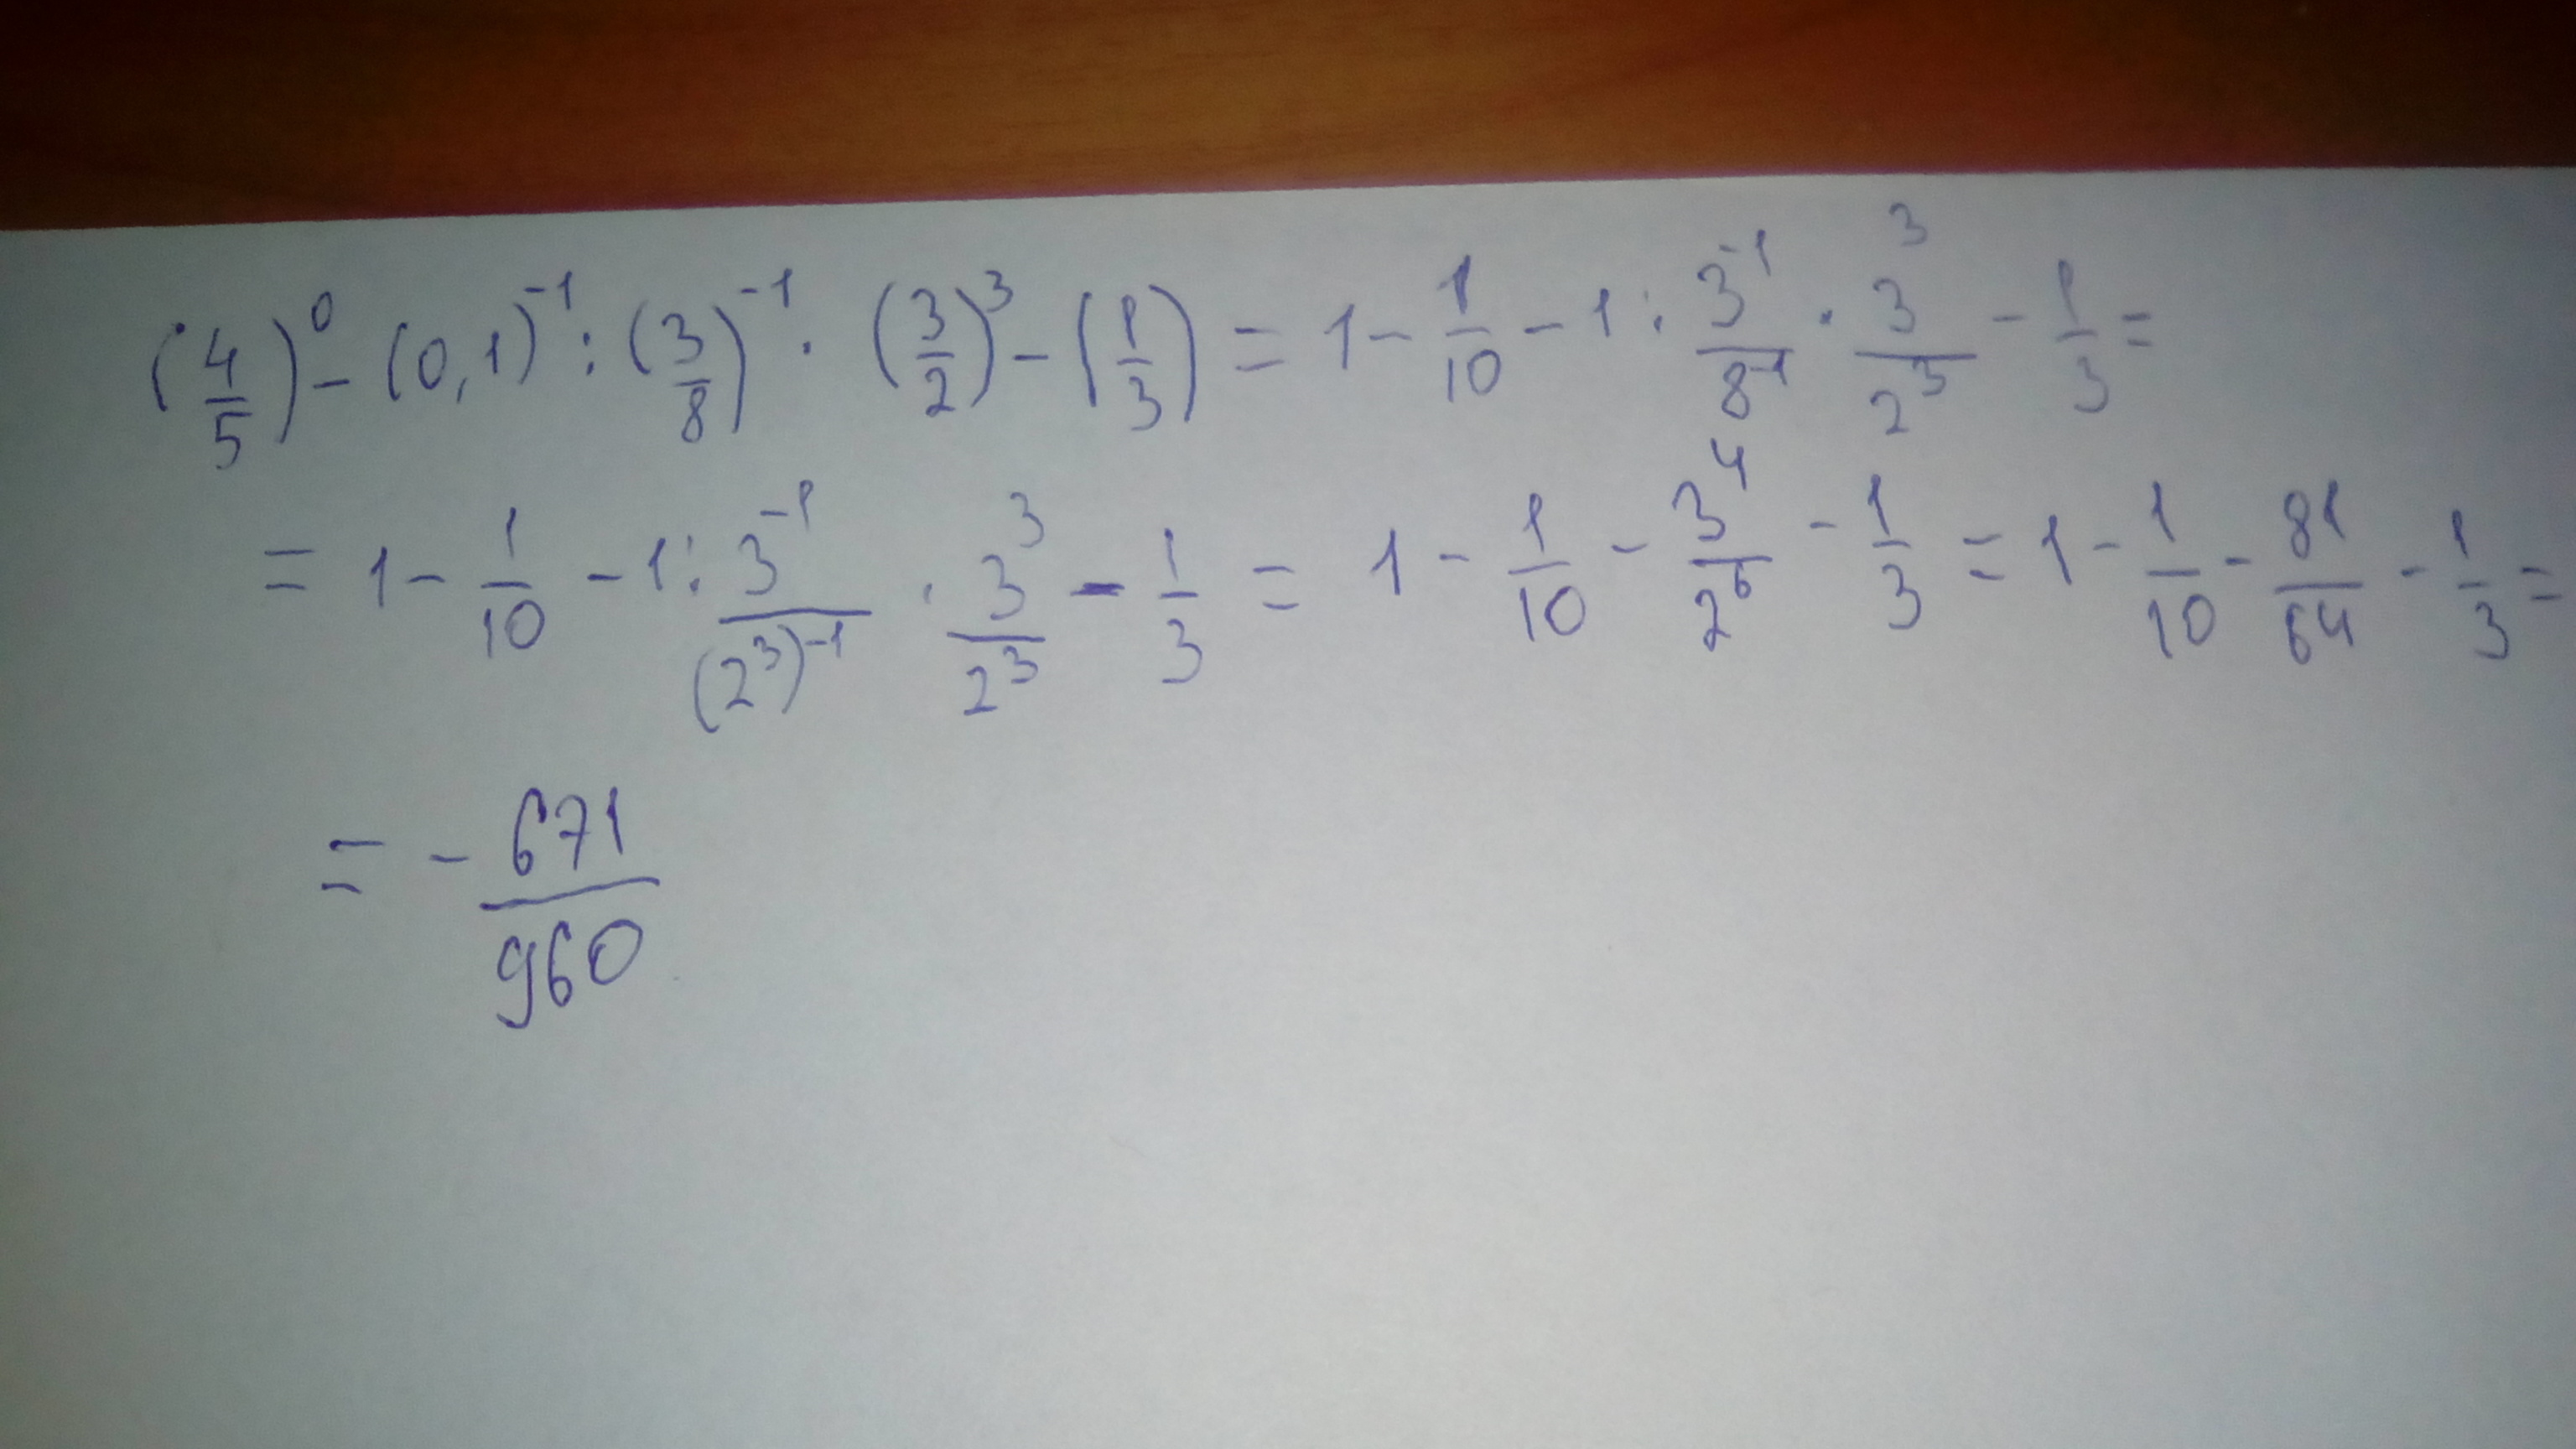 (4/5)^0 - (0,1)^-1 : (3/8)^-1 · (3/2)^3 - (1/3) = 1 - 1/10 - 1 : 3^-1/8^-1 · 3^3/2^3 - 1/3 =
= 1 - 1/10 - 1 : 3^-1/(2^3)^-1 · 3^3/2^3 - 1/3 = 1 - 1/10 - 3^4/2^6 - 1/3 = 1 - 1/10 - 81/64 - 1/3 =
= - 671/960